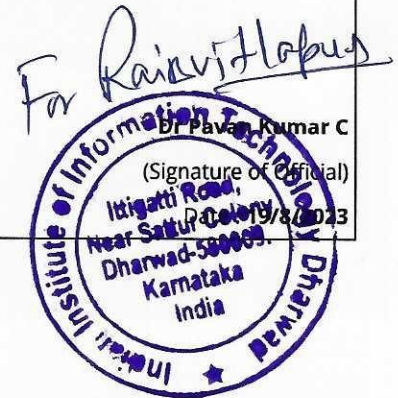 For
Dr Pavan Kumar C
(Signature of Official)
Date: 19/8/2023
Indian Institute of Information Technology Dharwad
Ittigatti Road,
Near Sattur Colony
Dharwad-580009.
Karnataka
India